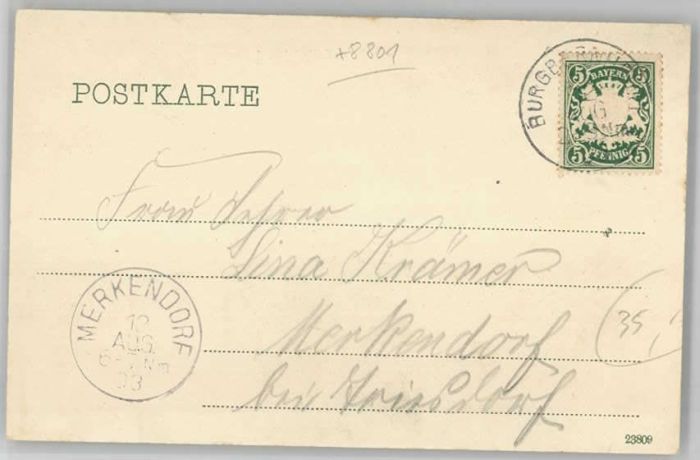 +8801
POSTKARTE
BURGBERNHEIM
BAYERN
5 5
5 5
PFENNIG
Frau Lehrer
Lina Krämer
Merkendorf
bei Triesdorf
MERKENDORF
10
AUG.
Nm
03
35,
23809